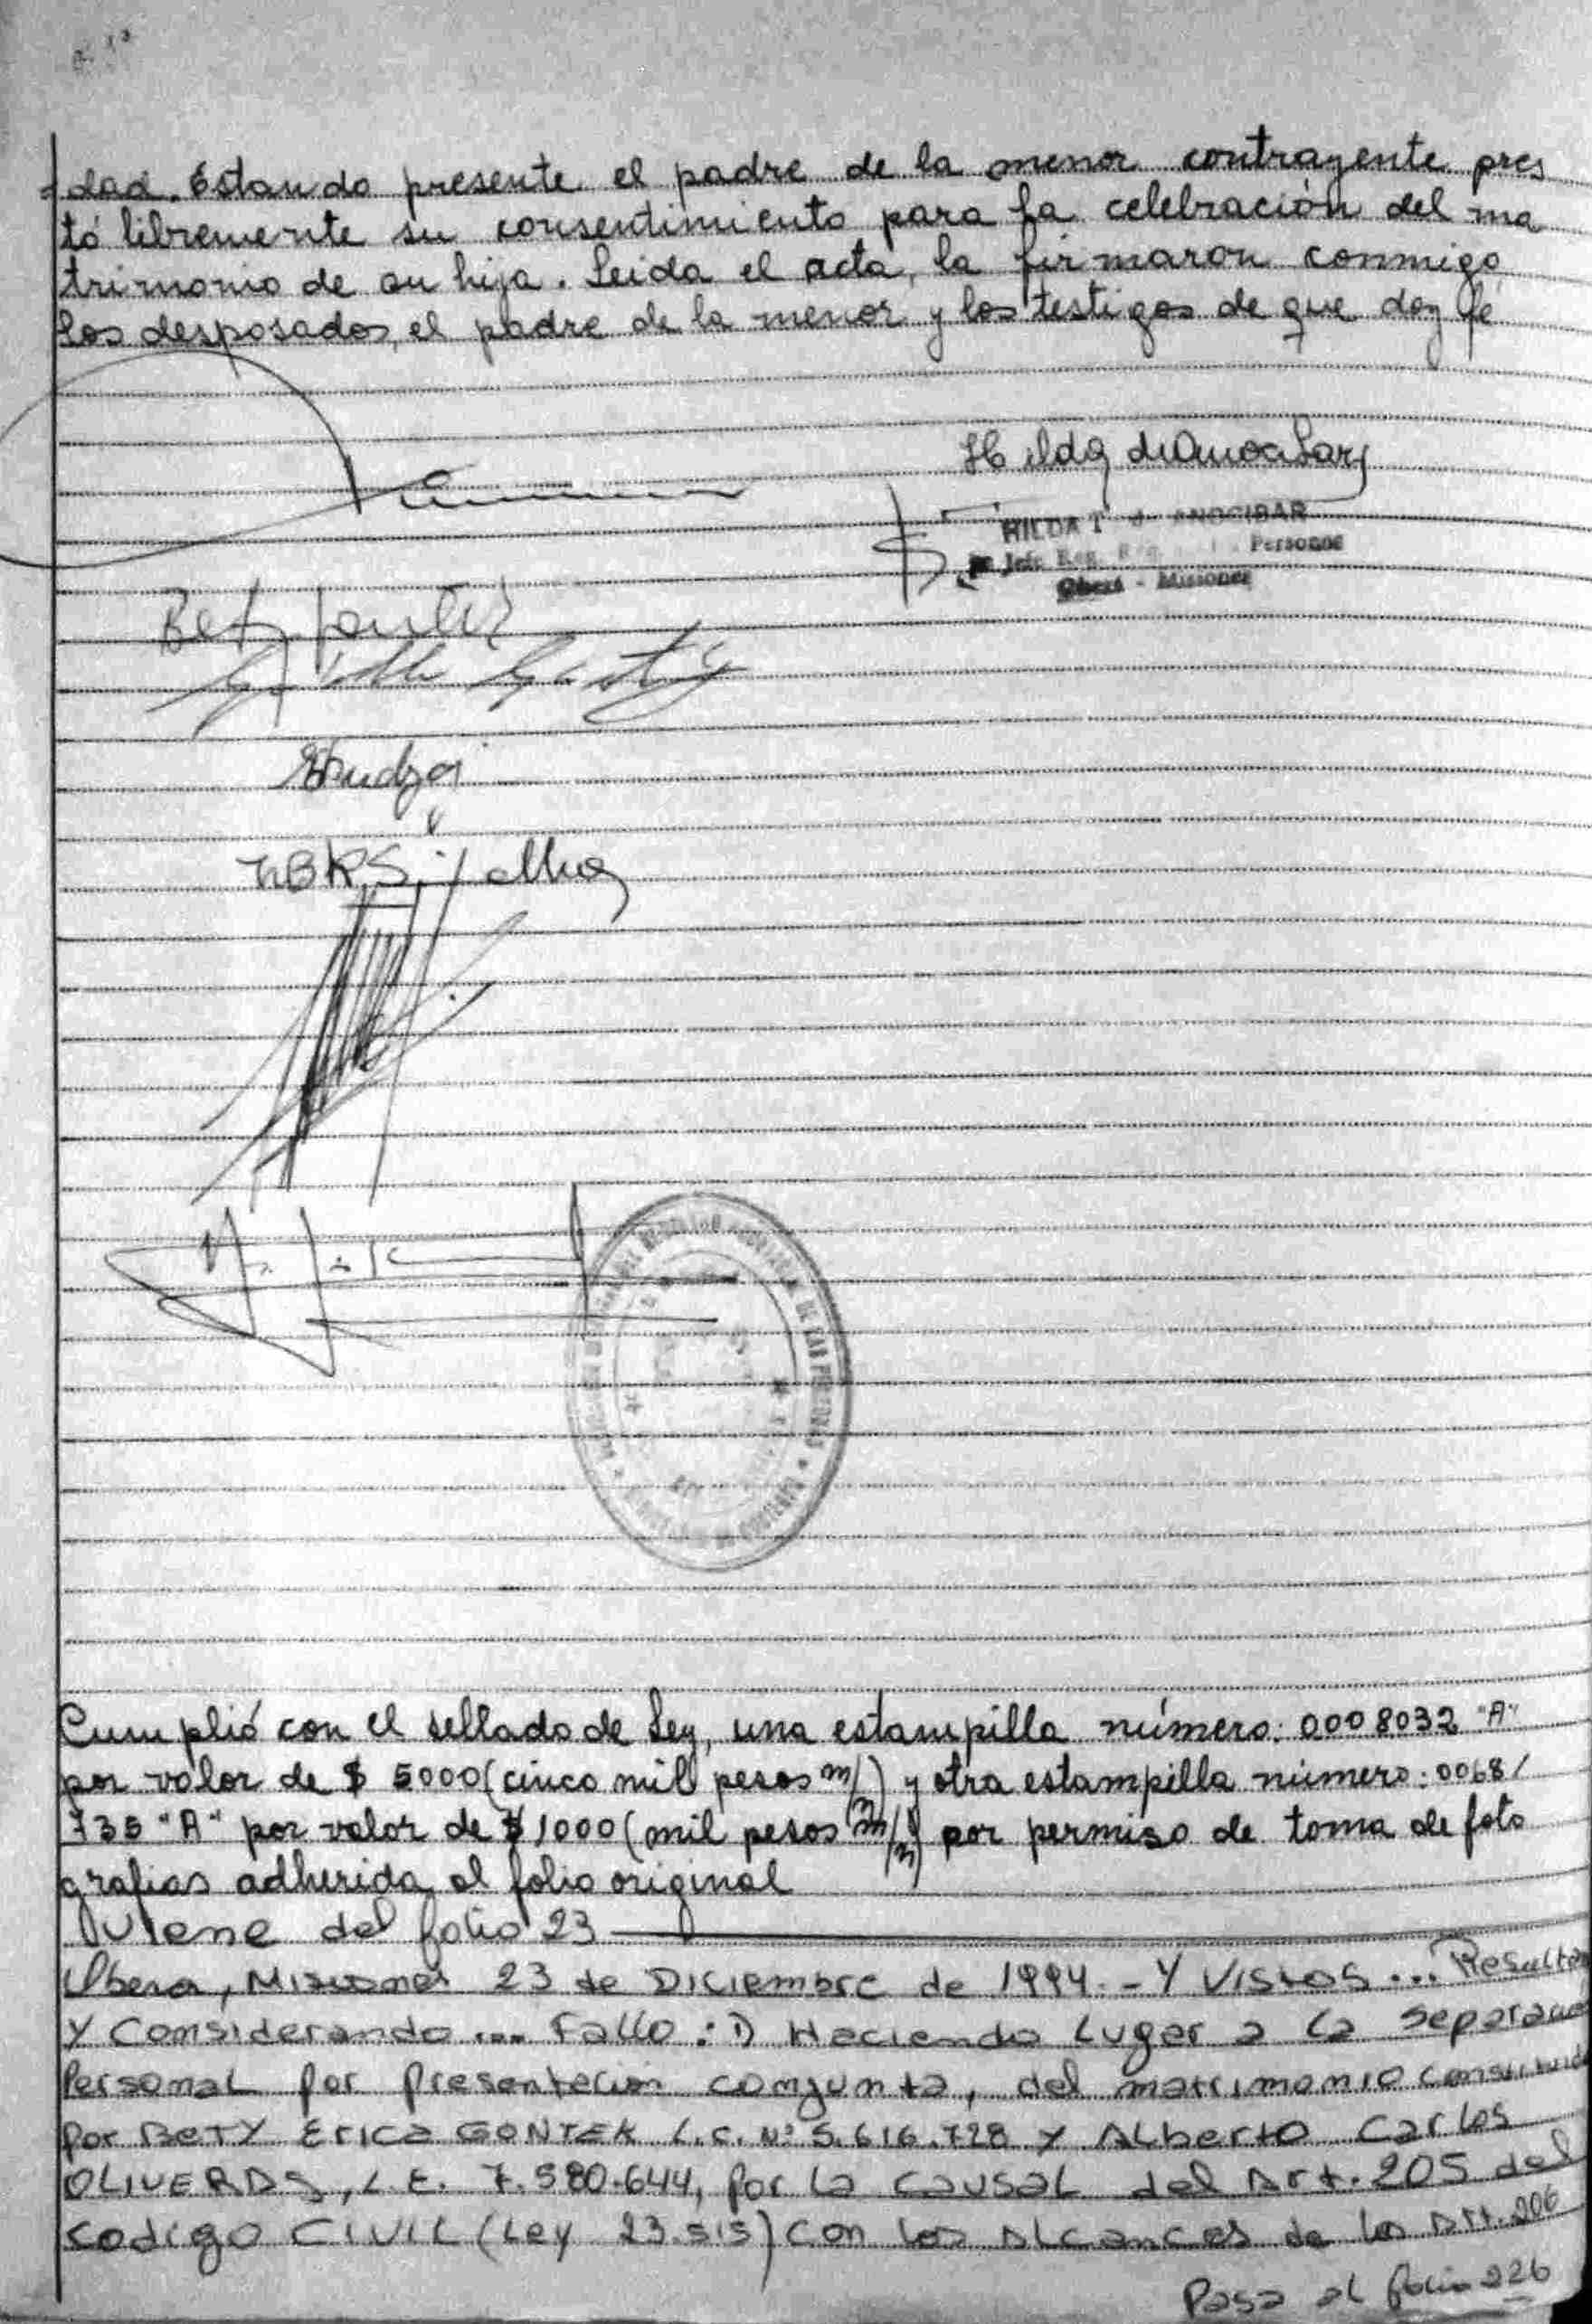 dad. Estando presente el padre de la menor contrayente pres
tó libremente su consentimiento para la celebración del ma
trimonio de su hija. Leida el acta, la firmaron conmigo
los desposados, el padre de la menor y los testigos de que doy fé
HILDA T ANOCIBAR
Jefe Reg. Personas
Oberá - Misiones
Cumplió con el sellado de Ley, una estampilla número: 0008032 "A"
por valor de $ 5000 (cinco mil pesos m/) y otra estampilla número: 0068/
735 "A" por valor de $ 1000 (mil pesos m/n) por permiso de toma de foto
grafias adherida al folio original
Viene del folio 23
Obera, Misiones 23 de Diciembre de 1994.- Y Vistos ... Resulta
Y Considerando ... Fallo: 1) Haciendo Lugar a la Separac
Personal por presentación conjunta, del matrimonio constituid
por BETY ERICA GONTEK L.C. Nº 5.616.728 Y ALberto Carlos
OLIVERDS, L.E. 7.580.644, por la causal del Art. 205 del
codigo CIVIL (Ley 23.515) con los alcances de los Art. 206
Pasa al folio 226